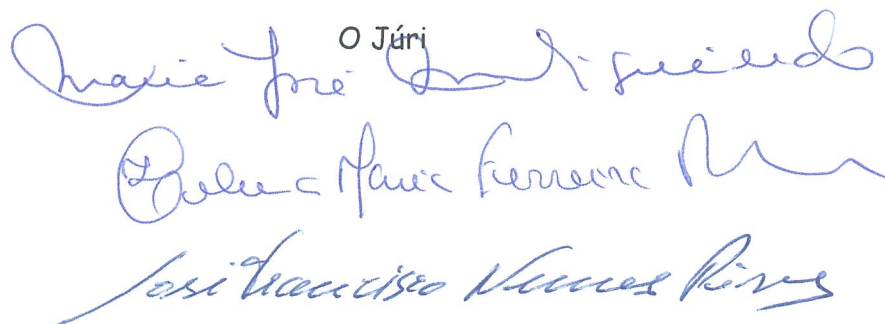 O Júri
Maria José Figueiredo
Maria Ferreira
José Francisco Nunes